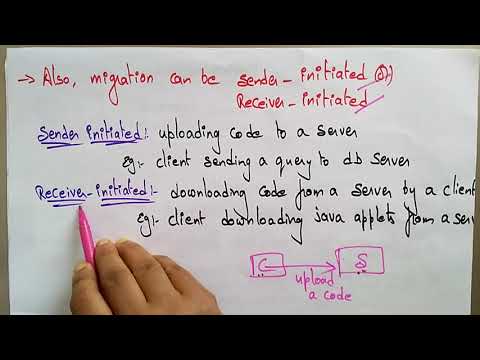 → Also, migration can be sender-initiated (or)
Receiver-initiated
Sender initiated:- uploading code to a server
Eg:- client sending a query to db server
Receiver-initiated:- downloading code from a server by a client
Eg:- client downloading java applets from a serve
C S
upload
a code